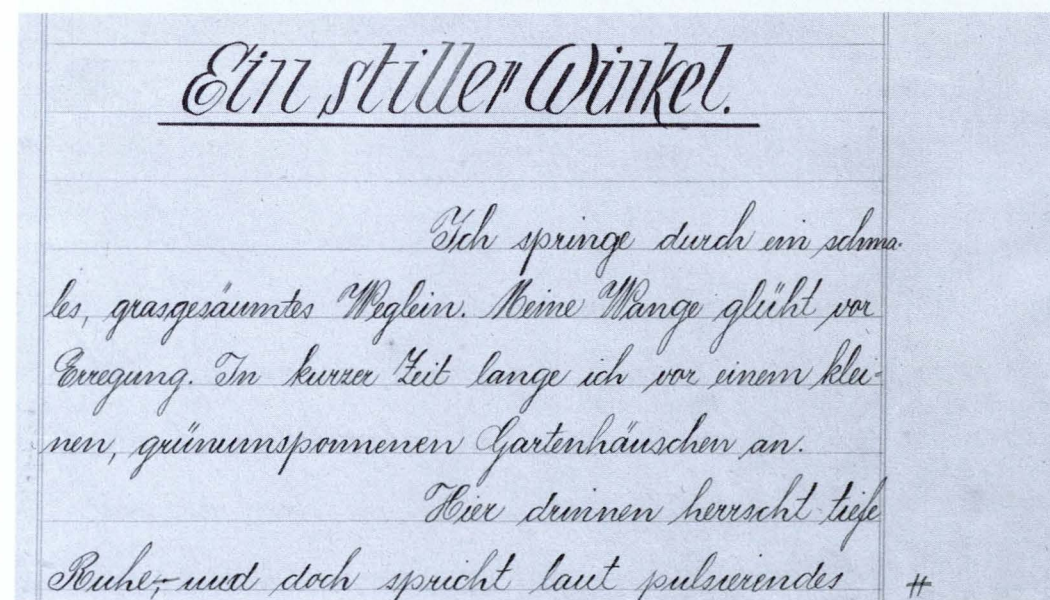 Ein stiller Winkel.
Ich springe durch ein schma-
les, grasgesäumtes Weglein. Meine Wange glüht vor
Erregung. In kurzer Zeit lange ich vor einem klei-
nen, grünumsponnenen Gartenhäuschen an.
Hier drinnen herrscht tiefe
Ruhe,- und doch spricht laut pulsierendes #